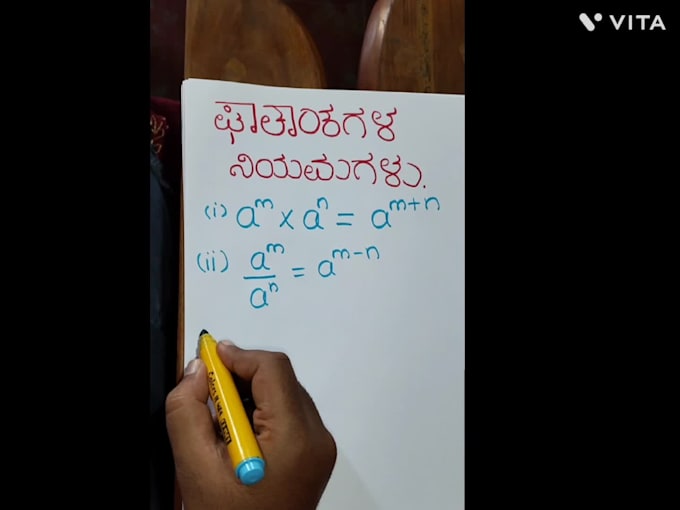 VITA
ಘಾತಾಂಕಗಳ
ನಿಯಮಗಳು.
(i) a^m × a^n = a^{m+n}
(ii) a^m / a^n = a^{m-n}